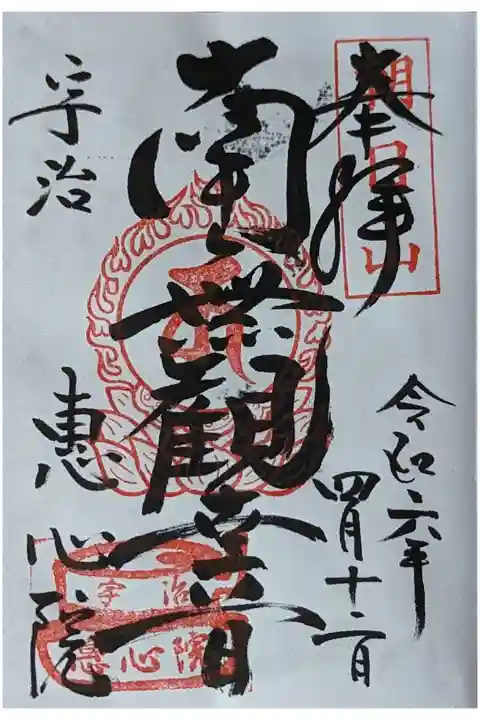 奉拝
朝日山
令和六年
四月十二日
南無観世音
宇治
恵心院
宇治
恵心院